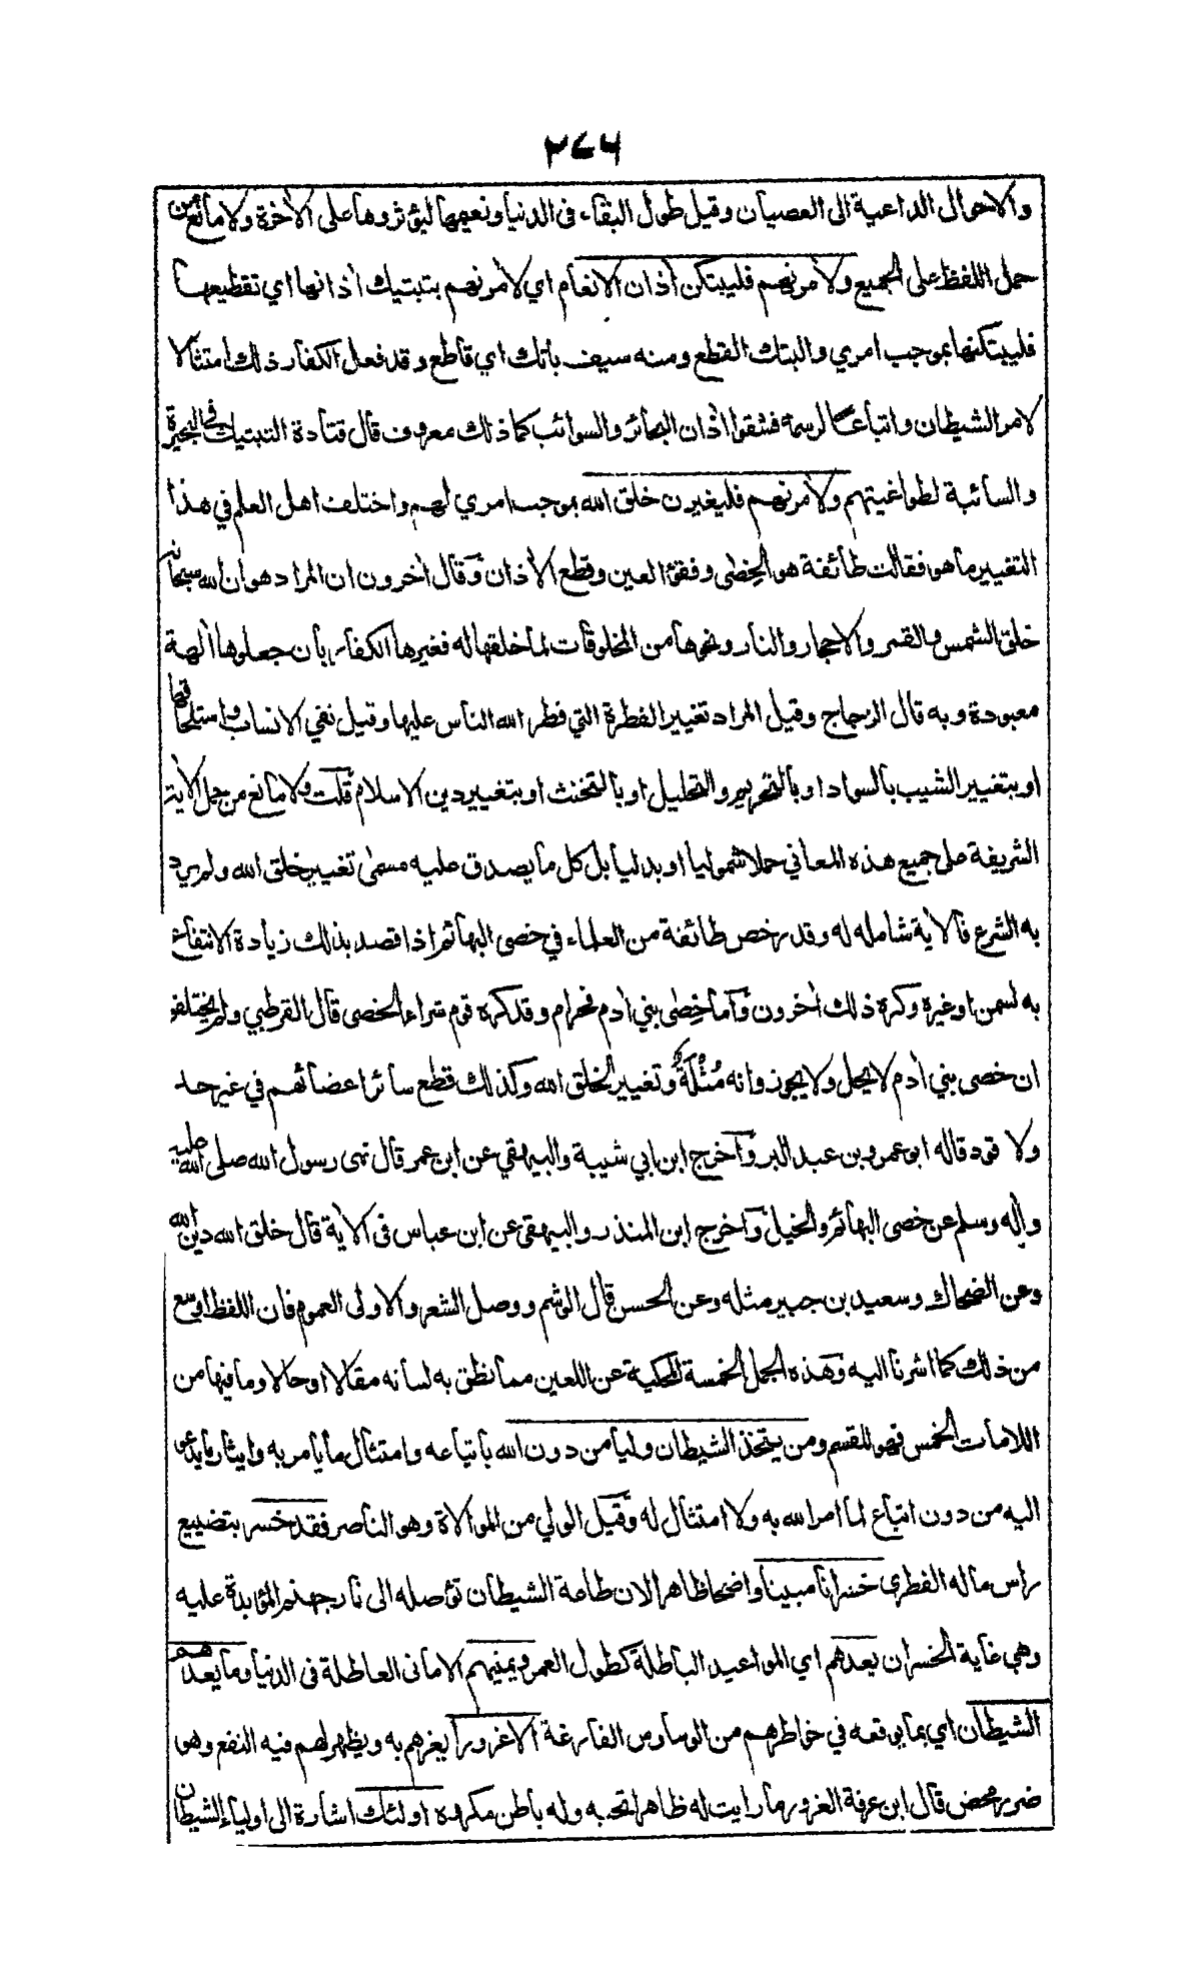 ٢٧٦
والاحوال الداعية الى العصيان وقيل طول البقاء فى الدنيا ونعيمها ليؤثروها على الأخرة ولا مانع من
حمل اللفظ على الجميع ولأمرنهم فليبتكن أذان الانعام اي لأمرنهم بتبتيك أذانها اي تقطيعها
فليبتكنها بموجب امري والبتك القطع ومنه سيف باتك اي قاطع وقد فعل الكفار ذلك امتثالا
لامر الشيطان واتباعا لرسمه فشقوا أذان البحائر والسوائب كما ذلك معروف قال قتادة التبتيك فى البحيرة
والسائبة لطواغيتهم ولأمرنهم فليغيرن خلق الله بموجب امري لهم واختلف اهل العلم في هذا
التغيير ما هو فقالت طائفة هو الخِصٰى وفقؤ العين وقطع الأذان وقال أخرون ان المراد هو ان الله سبحانه
خلق الشمس والقمر والاحجار والنار ونحوها من المخلوقات لما خلقها له فغيرها الكفار بان جعلوها ألهة
معبودة وبه قال الزجاج وقيل المراد تغيير الفطرة التي فطر الله الناس عليها وقيل نفي الانساب واستلحاقها
او بتغيير الشيب بالسواد او بالتحريم والتحليل او بالتخنث او بتغيير دين الاسلام قلت ولا مانع من حمل الأية
الشريفة على جميع هذه المعاني حملا شموليا او بدليا بل كل ما يصدق عليه مسمى تغيير خلق الله ولم يرد
به الشرع فالأية شامله له وقد رخص طائفة من العلماء في خصى البهائم اذا قصد بذلك زيادة الانتفاع
به لسمن او غيره وكره ذلك أخرون وأما خِصٰى بني أدم فحرام وقد كره قوم شراء الخصى قال القرطبي ولم يختلفوا
ان خصى بني أدم لا يحل ولا يجوز وانه مُثْلَةٌ وتغيير لخلق الله وكذلك قطع سائر اعضائهم في غير حد
ولا قود قاله ابو عمرو بن عبد البر وأخرج ابن ابي شيبة والبيهقي عن ابن عمر قال نهى رسول الله صلى الله عليه
وأله وسلم عن خصى البهائم والخيل وأخرج ابن المنذر والبيهقى عن ابن عباس فى الأية قال خلق الله دين الله
وعن الضحاك وسعيد بن جبير مثله وعن الحسن قال الوشم ووصل الشعر والاولى العموم فان اللفظ اوسع
من ذلك كما اشرنا اليه وهذه الجمل الخمسة المحكية عن اللعين مما نطق به لسانه مقالا او حالا وما فيها من
اللامات الخمس فهو للقسم ومن يتخذ الشيطان وليا من دون الله باتباعه وامتثال ما يأمر به وايثار ما يدعو
اليه من دون اتباع لما امر الله به ولا امتثال له وقيل الولي من الموالاة وهو الناصر فقد خسر بتضييع
راس ماله الفطرى خسرانا مبينا واضحا ظاهرا لان طاعة الشيطان توصله الى نار جهنم المؤبدة عليه
وهي غاية الخسران يعدهم اي المواعيد الباطلة كطول العمر ويمنيهم الامانى العاطلة فى الدنيا وما يعدهم
الشيطان اي بما يوقعه في خواطرهم من الوساوس الفارغة الا غرورا يغرهم به ويظهر لهم فيه النفع وهو
ضرر محض قال ابن عرفة الغرور ما رايت له ظاهرا تحبه وله باطن مكروه اولئك اشارة الى اولياء الشيطان